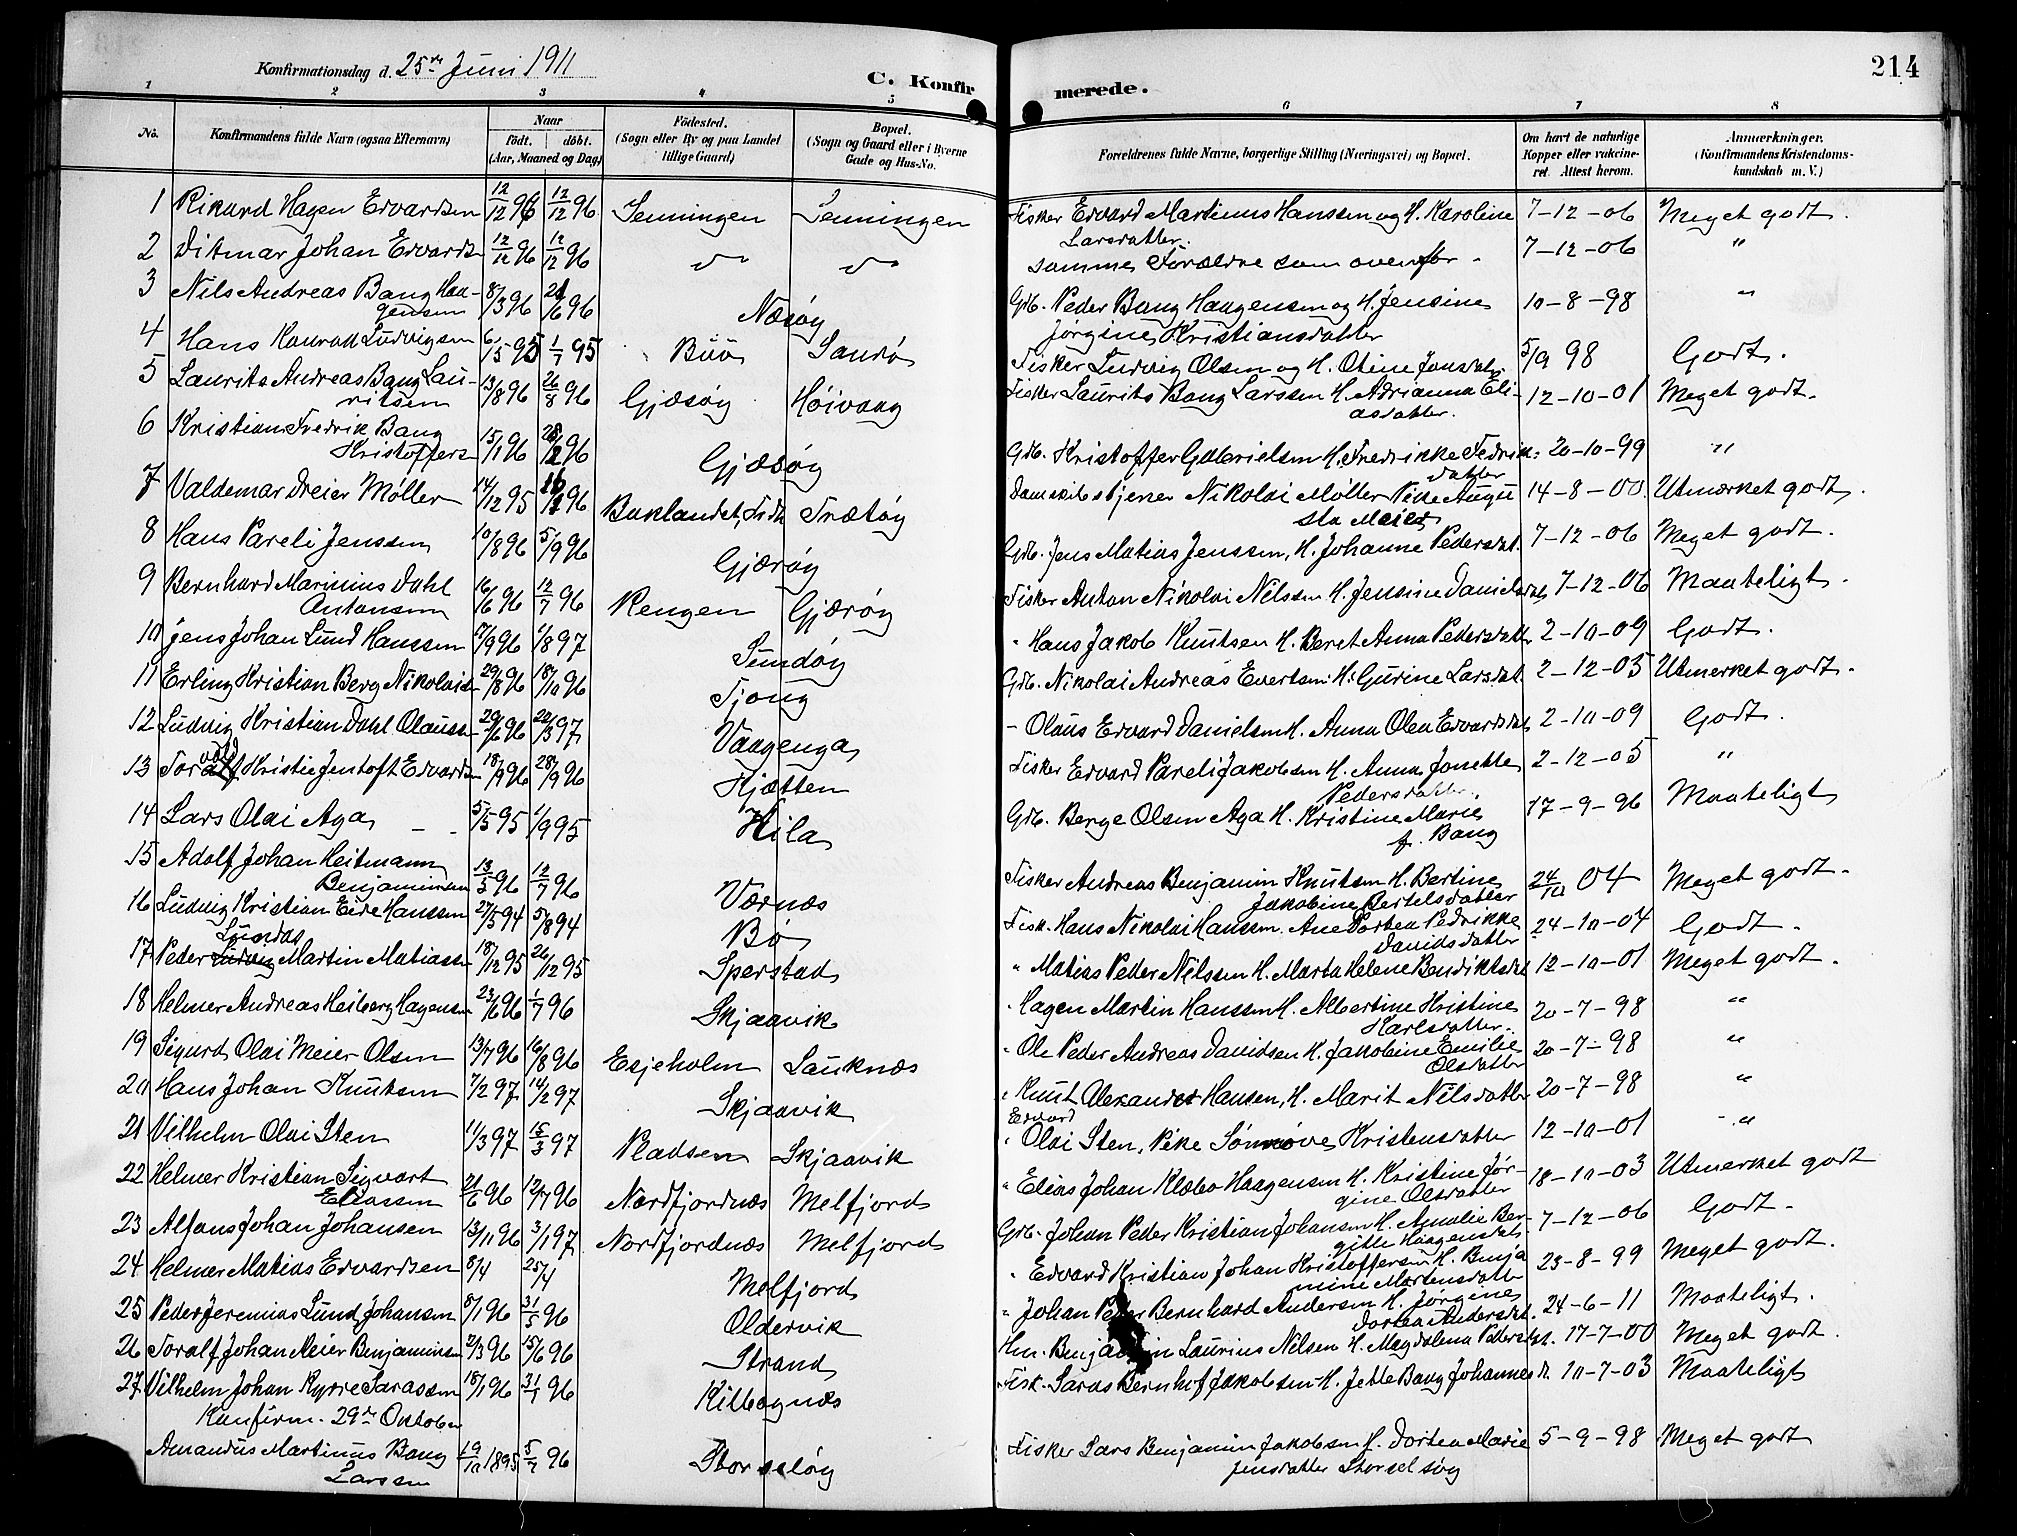 214
Konfirmationsdag d. 25de Juni 1911
C. Konfirmerede.
1 2 3 4 5 6 7 8
No.
Konfirmandens fulde Navn (ogsaa Efternavn)
Naar
födt. döbt.
(Aar, Maaned og Dag)
Födested.
(Sogn eller By og paa Landet
tillige Gaard)
Bopæl.
(Sogn og Gaard eller i Byerne
Gade og Hus-No.
Forældrenes fulde Navne, borgerlige Stilling (Næringsvei) og Bopæl.
Om havt de naturlige
Kopper eller vakcine-
ret. Attest herom.
Anmærkninger.
(Konfirmandens Kristendoms-
kundskab m. V.)
1 Rikard Hagen Edvardsen 12/12 96 12/12 96 Selningen Selningen Fisker Edvard Martinus Hanssen og H. Karoline 7-12-06 Meget godt.
Larsdatter.
2 Ditmar Johan Edvards 12/12 96 12/12 96 samme Forældre som ovenfor. 7-12-06 "
3 Nils Andreas Bang Haa- 8/3 96 21/6 96 Næsøy Gdb. Peder Bang Haagensen og H. Jensine 10-8-98 "
gensen Jørgine Kristiansdatter
4 Hans Konrad Ludvigsen 6/5 95 1/7 95 Sandø Fisker Ludvig Olsen og H. Otine Jonsdatr. 5/9 98 Godt.
5 Laurits Andreas Bang Lau- 13/8 96 26/8 96 Gjæsøy Høivaag Fisker Laurits Bang Larssen H. Adrianna Eli- 12-10-01 Meget godt.
ritsen asdatter.
6 Kristian Fredrik Bang
Kristoffers 15/1 96 Gjæsøy Gdb. Kristoffer Gabrielsen H. Fredrikke Fedrik: 20-10-99 "
datter
7 Valdemar Dreier Møller 14/12 95 Baklandet, Trdh. Træløy Nikolai Møller Pike Augu 14-8-00 Utmærket godt.
sta Meier
8 Hans Pareli Jenssen 10/8 96 5/9 96 Gjærøy Gdb. Jens Matias Jenssen, H. Johanne Pedersdat. 7-12-06 Meget godt.
9 Bernhard Marinius Dahl 16/6 96 12/7 96 Rengen Gjærøy Fisker Anton Nikolai Nilssen H. Jensine Danielsdat. 7-12-06 Maateligt.
Antonsen
10 Jens Johan Lund Hanssen 1/8 97 Sundøy " Hans Jakob Knutsen H. Beret Anna Pedersdatt 2-10-09 Godt.
11 Erling Kristian Berg Nikolais 29/8 96 18/10 96 Tjong Gdb. Nikolai Andreas Evertsen H. Gurine Larsdat. 2-12-05 Utmerket godt.
12 Ludvig Kristian Dahl Olauss 29/6 96 22/3 97 Vaagenga - Olaus Edvard Danielsen H. Anna Olea Edvardsdat 2-10-09 Godt.
13 Kristie Jentoft Edvards 18/9 96 28/9 96 Hjætten Fisker Edvard Pareli Jakobsen H. Anna Jonette 2-12-05 "
Pedersdatter.
14 Lars Olai Aga 5/5 95 1/9 95 Hila Gdb. Berge Olsen Aga H. Kristine Marie 17-9-96 Maateligt
f. Bang
15 Adolf Johan Heitmann
Benjaminsen 13/5 96 12/7 96 Værnæs Fisker Andreas Benjamin Knutsen H. Bertine 24/10 04 Meget godt.
Jakobine Bertelsdatter
16 Ludvig Kristian Eide Hanssen 27/5 94 5/8 94 Bø Fisk. Hans Nikolai Hanssen. Ane Dortea Pedrikke 24-10-04 Godt.
Davidsdatter
17 Peder Martin Matiass 18/12 95 26/12 95 Sperstad " Matias Peder Nilssen H. Marta Helene Bendiktsdat 12-10-01 Meget godt.
18 Helmer Andreas Heiberg Hagens 23/6 96 1/7 96 Skjaavik Hagen Martin Hanssen H. Albertine Kristine 20-7-98 "
Karlsdatter.
19 Sigurd Olai Meier Olsen 13/7 96 16/8 96 Esjeholm Lauknæs " Ole Peder Andreas Davidsen H. Jakobine Emilie 20-7-98 "
Olsdatter
20 Hans Johan Knutsen 7/2 97 14/2 97 Skjaavik " Knut Alexander Hansen, H. Marit Nilsdatter 20-7-98 "
21 Vilhelm Olai Sten 11/3 97 15/3 97 Pladsen Skjaavik " Edvard Olai Sten, Pike Sønnøve Kristensdatter 12-10-01 "
22 Helmer Kristian Sigvart 21/6 96 12/7 96 Nordfjordnæs Melfjord " Elias Johan Klæbo Haagensen H. Kristine Jør- 18-10-03 Utmerket godt
Eliassen gine Olsdatter
23 Alfons Johan Johansen 13/11 96 3/1 97 Nordfjordnæs Melfjord Gdb. Johan Peder Kristian Johansen H. Amalie Ber- 7-12-06 Godt.
gitte Haagensdat.
24 Helmer Matias Edvardsen 8/4 25/4 Melfjord " Edvard Kristian Johan Kristoffersen H. Benja 23-8-99 Meget godt.
mine Mortensdatter
25 Peder Jeremias Lund Johansen 8/1 96 31/5 96 Oldervik " Johan Peder Bernhard Andersen H. Jørgine 24-6-11 Maateligt.
Dortea Andersdat.
26 Toralf Johan Meier Benjaminsen 2/3 96 15/6 96 Strand Hm. Benjamin Laurius Nilsen H. Magdalena Pedersdat. 17-7-00 Meget godt.
27 Vilhelm Johan Kyrre Sarassen 18/1 96 Kilbognæs Fisk. Saras Bernhof Jakobsen H. Jette Bang Johannesd. 10-7-03 Maateligt
Konfirm. 29de Oktober
Amandus Martinus Bang 19/10 1895 5/7 96 Storseløy Fisker Lars Benjamin Jakobsen H. Dortea Marie 5-9-98 Meget godt
Larssen Jensdatter Storselsøy